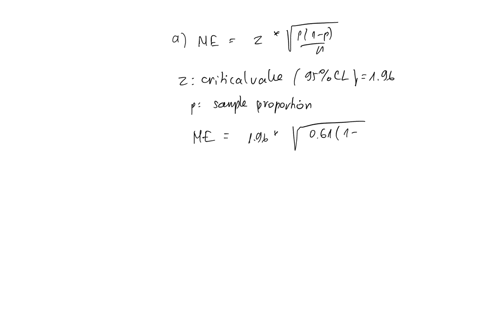 a) ME = z * √(p(1-p)/n)
z: critical value (95% CL) = 1.96
p: sample proportion
ME = 1.96 * √0.61(1-